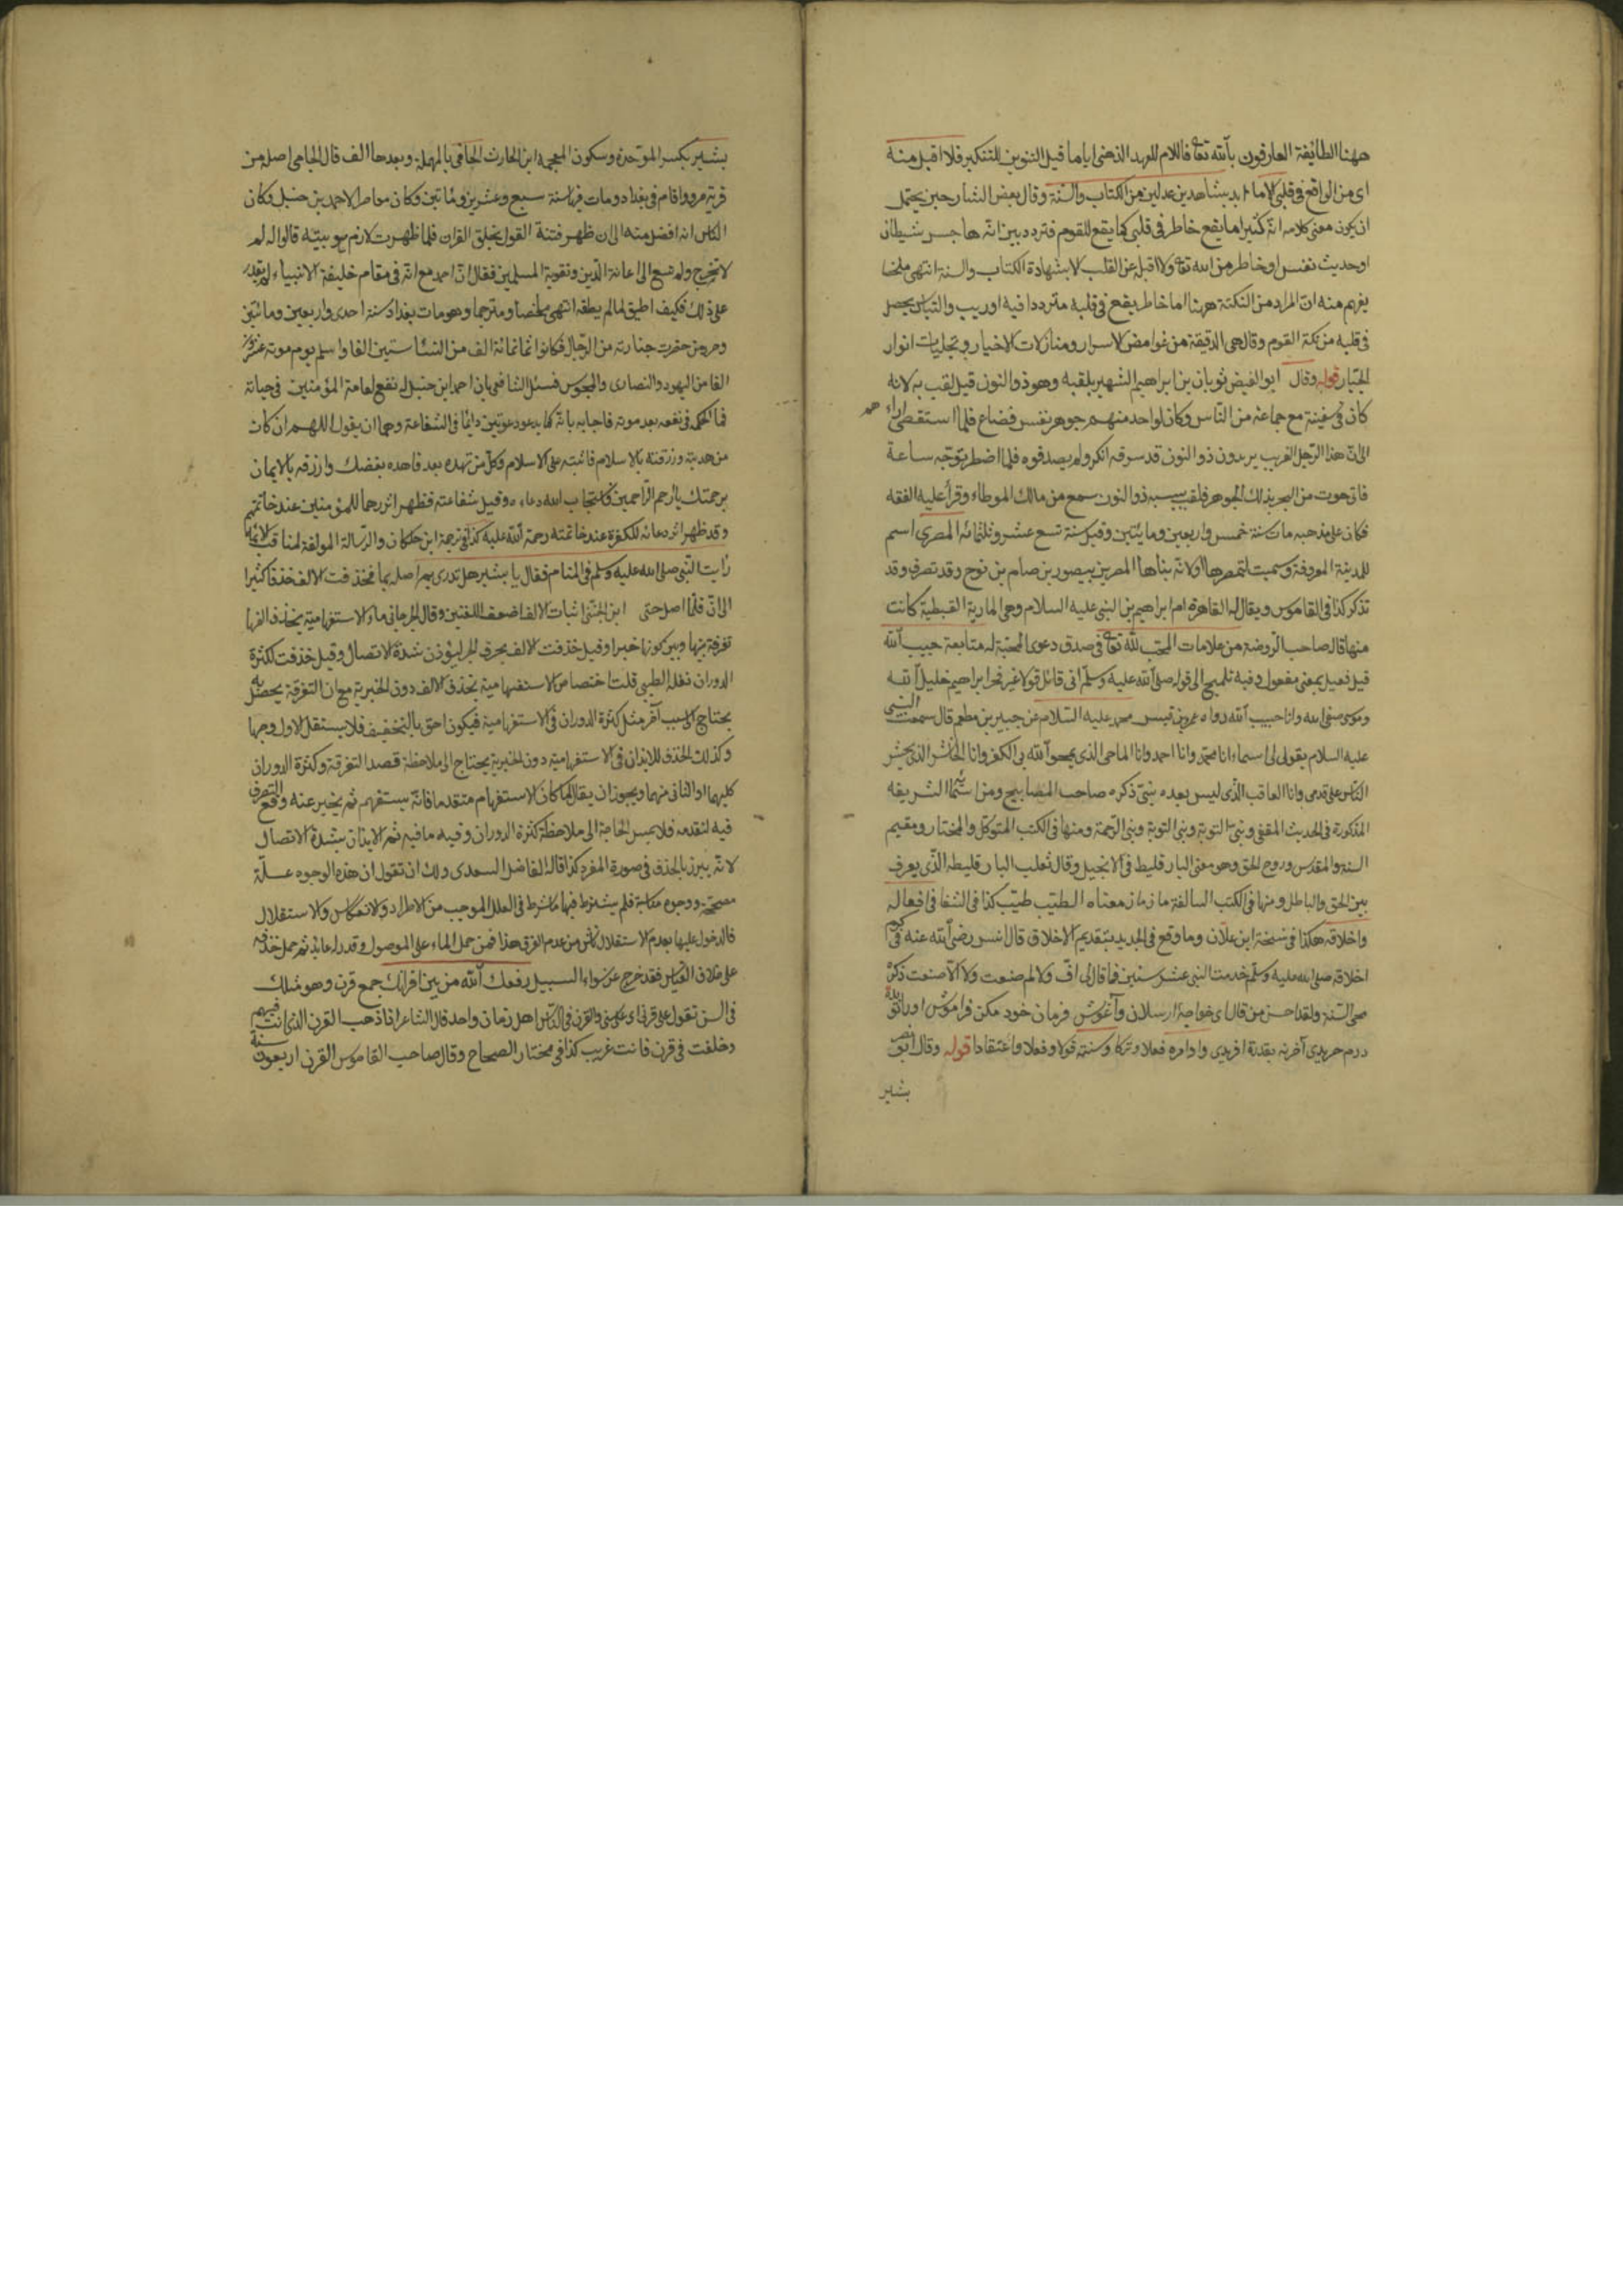 ههنا الطائفة العارفون بالله تعا فاللام للعهد الذهنى اياما قيل التنوين للتنكير فلا اقبل منه
اى من الواقع فى قلبى الاما بشاهدين عدلين من الكتاب والسنة وقال بعض الشارحين يحتمل
ان يكون معنى كلامه انه كثيرا ما يقع خاطر فى قلبى كما يقع للقوم فتردد بين انه هاجس شيطان
او حديث نفس او خاطر من الله تعا ولا اقبله عن القلب الا بشهادة الكتاب والسنة انتهى ملخصا
يفهم منه ان المراد من النكتة ههنا اما خاطر يقع فى قلبه مترددا فيه او ريب والتباس يحصل
فى قلبه من نكتة القوم وقال هى الدقيقة من غوامض الاسرار ومنازلات الاخيار وتجليات انوار
الجبار قوله وقال ابو الفيض ثوبان بن ابراهيم الشهير بلقبه وهو ذو النون قيل لقب به لانه
كان فى سفينة مع جماعة من الناس وكان لواحد منهم جوهر نفيس فضاع فلما استقصى اراء
الى ان هذا الرجل الغريب يريدون ذو النون قد سرقه انكر ولم يصدقوه فلما اضطر توجه ساعة
فاتى حوت من البحر بذلك الجوهر فلقب بسببه ذو النون سمع من مالك الموطاء وقرأ عليه الفقه
فكان على مذهبه مات سنة خمس واربعين ومايتين وقيل سنة تسع عشر وثلثمائه المصرى اسم
للمدينة المعروفة وسميت لتمصرها او لانه بناها المصر بن بيصور بن صام بن نوح وقد تصرف وقد
تذكر كذا فى القاموس ويقال له القاهرة ام ابراهيم بن النبى عليه السلام وهى المارية القبطية كانت
منها قال صاحب الروضة من علامات المحب لله تعا فى صدق دعوى المحبة له متابعة حبيب الله
قيل فعيل بمعنى مفعول وفيه تلميح الى قوله صلى الله عليه وسلم انى قائل قولا غير فخر ابراهيم خليل الله
وموسى صفى الله وانا حبيب الله رواه عمرو بن قيس محمد عليه السلام عن جبير بن مطعم قال سمعت النبى
عليه السلام يقول لى اسماء انا محمد وانا احمد وانا الماحى الذى يمحو الله بى الكفر وانا الحاشر الذى يحشر
الناس على قدمى وانا العاقب الذى ليس بعده نبى ذكره صاحب المصابيح ومن اسمائه الشريفه
المذكورة فى الحديث المقفى ونبى التوبة ونبى الرحمة ومنها فى الكتب المتوكل والمختار ومقيم
السنة والمقدس وروح الحق وهو معنى البارقليط فى الانجيل وقال ثعلب البارقليط الذى يعرف
بين الحق والباطل ومنها فى الكتب السالفة ماذ ماذ معناه الطيب طيب كذا فى الشفا فى افعاله
واخلاقه هكذا فى نسخة ابن علان وما وقع فى الجديد بتقديم الاخلاق قال انس رضى الله عنه فى كرم
اخلاقه صلى الله عليه وسلم خدمت النبى عشر سنين فما قال لى اف ولا لم صنعت ولا الا صنعت ذكره
محى السنة ولقد احسن من قال اى خواجه ارسلان وآغوش فرمان خود مكن فراموش
وادامره فعلا وتركا وسننه قولا وفعلا واعتقادا قوله وقال ابو نصر
بشير
بشير بكسر الموحدة وسكون المعجمه ابن الحارث الحافى بالمهملة وبعدها الف قال الجامى اصله من
قرية مرو واقام فى بغداد ومات فيها سنة سبع وعشرين ومائتين وكان معاصر الاحمد بن حنبل وكان
الناس انه افضل منه الى ان ظهر فتنة القول بخلق القران فلما ظهرت لازم هو بيته قالوا له لم
لا تخرج ولم تسع الى اعانة الدين وتقوية المسلمين فقال ان احمد مع انه فى مقام خليفة الانبياء لم يقدر
على ذلك فكيف اطيق لما لم يطقه انتهى ملخصا ومترجما وهو مات ببغداد سنة احدى واربعين ومائتين
وحضرت جنازته من الرجال فكانوا ثمانمائة الف من النساء ستين الفا واسلم يوم موته عشرون
الفا من اليهود والنصارى والمجوس فسئل الشافعى بان احمد ابن حنبل له نفع لعامة المؤمنين فى حياته
فما الحكم فى نفعه بعد موته فاجابه بانه كما يدعو دعوتين دائما فى الشفاعة وهما ان يقول اللهم ان كان
من هديته ورزقته بالاسلام فاثبته على الاسلام وكل من تهده بعد فاهده بفضلك وارزقه بالايمان
برحمتك يا ارحم الراحمين فاستجاب الله دعاءه وقبل شفاعته فظهر اثرها للمؤمنين عند خاتمتهم
وقد ظهر اثر دعائه للكفرة عند خاتمته رحمة الله عليه كذا فى ترجمة ابن خلكان والرسالة المولفة لمناقب الائمة
رايت النبى صلى الله عليه وسلم فى المنام فقال يا بشير هل تدرى بم اصله بما فحذفت الالف حذفا كثيرا
الى ان قلما اصل حتى ابن الجنى اثبات الالف اضعف اللغتين وقال الجرجانى ماء الاستفهامية يحذف الفها
تفرقة بينها وبين كونها خبرا وقيل حذفت الالف بحرف الجر ليؤذن شدة الاتصال وقيل حذفت لكثرة
الدوران نقله الطيبى قلت اختصاص الاستفهامية بحذف الالف دون الخبرية مع ان التفرقة يحصل به
يحتاج الى سبب آخر مثل كثرة الدوران فى الاستفهامية فيكون احق بالتخفيف فلا يستقل الاول وجها
وكذلك الحذف للايذان فى الاستفهامية دون الخبرية يحتاج الى ملاحظة قصد التفرقة وكثرة الدوران
كليهما او الثانى منهما ويجوز ان يقال لما كان الاستفهام متقدما فانه يستفهم ثم يخبر عنه وقع التصرف
فيه لتقدمه فلا يمس الحاجة الى ملاحظة كثرة الدوران وفيه ما فيه ثم الايذان بشدة الاتصال
لانه يبرز بالحذف فى صورة المفرد كذا قاله الفاضل السعدى ولك ان تقول ان هذه الوجوه علة
مصححة ووجوه مناسبة فلم يشترط فيها ما شرط فى العلل الموجب من الاطراد والانعكاس والاستقلال
فالدخول عليها بعدم الاستقلال ناش من عدم الفرق هذا فمن حمل الماء على الموصول وقدر اعائد ثم حمل حذفه
على خلاف القياس فقد خرج عن سواء السبيل رفعك الله من بين اقرانك جمع قرن وهو مثلك
فى السن تقول على قرنى اى على سنى والقرن فى الناس اهل زمان واحد قال الشاعر اذا ذهب القرن الذى انت فيهم
وخلفت فى قرن فانت غريب كذا فى مختار الصحاح وقال صاحب القاموس القرن اربعون سنة